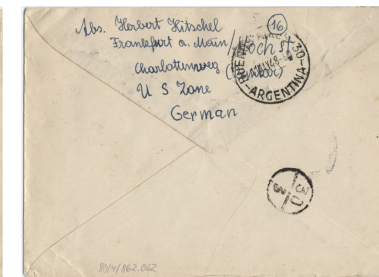 Abs. Herbert Hitschel
Frankfurt a. Main / Höchst
Charlottenweg
U S Zone
German
16
ARGENTINA
30
30
3
89/4/162.062